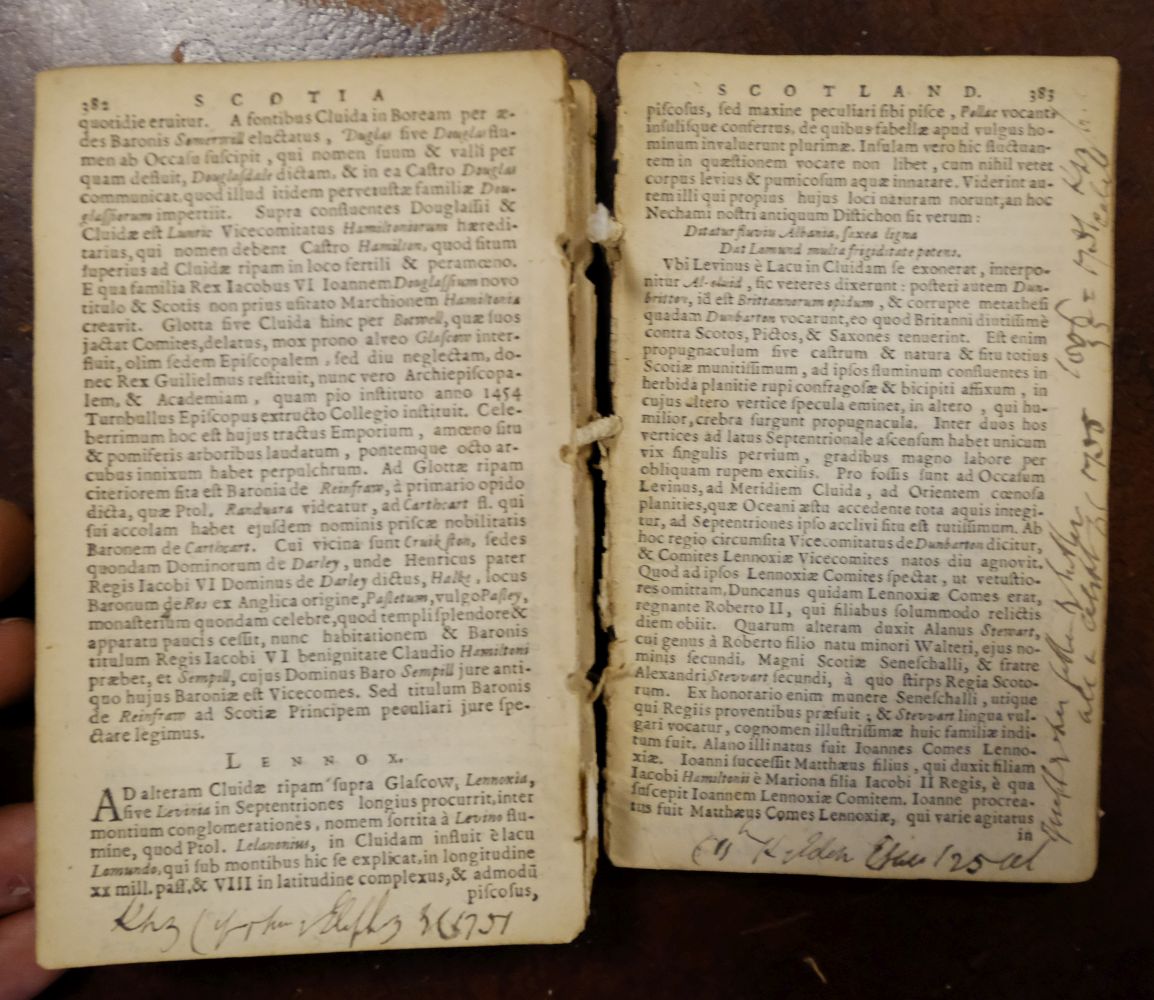 382 SCOTIA
quotidie eruitur. A fontibus Cluida in Boream per æ-
des Baronis Somerwill eluctatus, Duglas sive Douglas flu-
men ab Occasu suscipit, qui nomen suum & valli per
quam defluit, Douglasdale dictam, & in ea Castro Douglas
communicat, quod illud itidem pervetustæ familiæ Dou-
glassiorum impertiit. Supra confluentes Douglassii &
Cluidæ est Lunric Vicecomitatus Hamiltoniorum hæredi-
tarius, qui nomen debent Castro Hamilton, quod situm
superius ad Cluidæ ripam in loco fertili & peramœno.
E qua familia Rex Iacobus VI Ioannem Douglassium novo
titulo & Scotis non prius usitato Marchionem Hamiltonia
creavit. Glotta sive Cluida hinc per Botwell, quæ suos
jactat Comites, delatus, mox prono alveo Glascow inter-
fluit, olim sedem Episcopalem, sed diu neglectam, do-
nec Rex Guilielmus restituit, nunc vero Archiepiscopa-
lem, & Academiam, quam pio instituto anno 1454
Turnbullus Episcopus extructo Collegio instituit. Cele-
berrimum hoc est hujus tractus Emporium, amœno situ
& pomiferis arboribus laudatum, pontemque octo ar-
cubus innixum habet perpulchrum. Ad Glottæ ripam
citeriorem sita est Baronia de Reinfraw, à primario opido
dicta, quæ Ptol. Randuara videatur, ad Carthcart fl. qui
sui accolam habet ejusdem nominis priscæ nobilitatis
Baronem de Carthcart. Cui vicina sunt Cruikston, sedes
quondam Dominorum de Darley, unde Henricus pater
Regis Iacobi VI Dominus de Darley dictus, Halke, locus
Baronum de Ros ex Anglica origine, Pasletum, vulgo Pasley,
monasterium quondam celebre, quod templi splendore &
apparatu paucis cessit, nunc habitationem & Baronis
titulum Regis Iacobi VI benignitate Claudio Hamiltoni
præbet, et Sempill, cujus Dominus Baro Sempill jure anti-
quo hujus Baroniæ est Vicecomes. Sed titulum Baronis
de Reinfraw ad Scotiæ Principem peculiari jure spe-
ctare legimus.
LENNOX.
AD alteram Cluidæ ripam supra Glascow, Lennoxia,
sive Levinia in Septentriones longius procurrit, inter
montium conglomerationes, nomem sortita à Levino flu-
mine, quod Ptol. Lelanonius, in Cluidam influit è lacu
Lomundo, qui sub montibus hic se explicat, in longitudine
xx mill. pass. & VIII in latitudine complexus, & admodū
piscosus,
1751
SCOTLAND. 383
piscosus, sed maxine peculiari sibi pisce, Pollac vocant,
insulisque confertus, de quibus fabellæ apud vulgus ho-
minum invaluerunt plurimæ. Insulam vero hic fluctuan-
tem in quæstionem vocare non libet, cum nihil vetet
corpus levius & pumicosum aquæ innatare. Viderint au-
tem illi qui propius hujus loci naturam norunt, an hoc
Nechami nostri antiquum Distichon sit verum:
Ditatur fluviis Albania, saxea ligna
Dat Lomund multa frigiditate potens.
Vbi Levinus è Lacu in Cluidam se exonerat, interpo-
nitur Al-cluid, sic veteres dixerunt: posteri autem Dun-
britton, id est Brittannorum opidum, & corrupte metathesi
quadam Dunbarton vocarunt, eo quod Britanni diutissimè
contra Scotos, Pictos, & Saxones tenuerint. Est enim
propugnaculum sive castrum & natura & situ totius
Scotiæ munitissimum, ad ipsos fluminum confluentes in
herbida planitie rupi confragosæ & bicipiti affixum, in
cujus altero vertice specula eminet, in altero, qui hu-
milior, crebra surgunt propugnacula. Inter duos hos
vertices ad latus Septentrionale ascensum habet unicum
vix singulis pervium, gradibus magno labore per
obliquam rupem excisis. Pro fossis sunt ad Occasum
Levinus, ad Meridiem Cluida, ad Orientem cœnosa
planities, quæ Oceani æstu accedente tota aquis integi-
tur, ad Septentriones ipso acclivi situ est tutissimum. Ab
hoc regio circumsita Vicecomitatus de Dunbarton dicitur,
& Comites Lennoxiæ Vicecomites natos diu agnovit.
Quod ad ipsos Lennoxiæ Comites spectat, ut vetustio-
res omittam, Duncanus quidam Lennoxiæ Comes erat,
regnante Roberto II, qui filiabus solummodo relictis
diem obiit. Quarum alteram duxit Alanus Stewart,
cui genus à Roberto filio natu minori Walteri, ejus no-
minis secundi, Magni Scotiæ Seneschalli, & fratre
Alexandri Stevvart secundi, à quo stirps Regia Scoto-
rum. Ex honorario enim munere Seneschalli, utique
qui Regiis proventibus præfuit, & Stevvart lingua vul-
gari vocatur, cognomen illustrissimæ huic familiæ indi-
tum fuit. Alano illi natus fuit Ioannes Comes Lenno-
xiæ. Ioanni successit Matthæus filius, qui duxit filiam
Iacobi Hamiltonii è Mariona filia Iacobi II Regis, è qua
suscepit Ioannem Lennoxiæ Comitem. Ioanne procrea-
tus fuit Matthæus Comes Lennoxiæ, qui varie agitatus
in